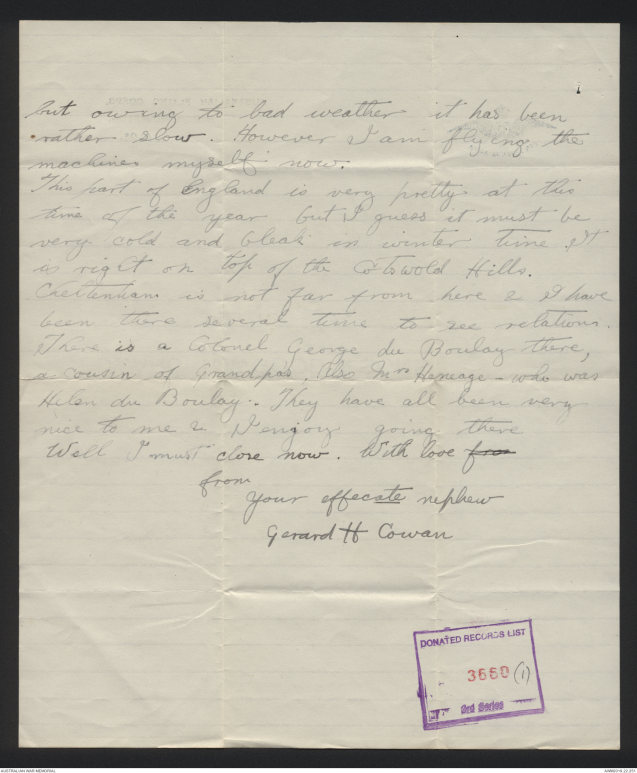 but owing to bad weather it has been
rather slow. However I am flying the
machines myself now.
This part of England is very pretty at this
time of the year but I guess it must be
very cold and bleak in winter time. It
is right on top of the Cotswold Hills.
Cheltenham is not far from here & I have
been there several time to see relations.
There is a Colonel George du Boulay there,
a cousin of Grandpas. Also Mrs Heneage - who was
Helen du Boulay. They have all been very
nice to me & I enjoy going there
Well I must close now. With love
from
Your affecate nephew
Gerard H Cowan
DONATED RECORDS LIST
3660 (1)
3rd Series
AUSTRALIAN WAR MEMORIAL